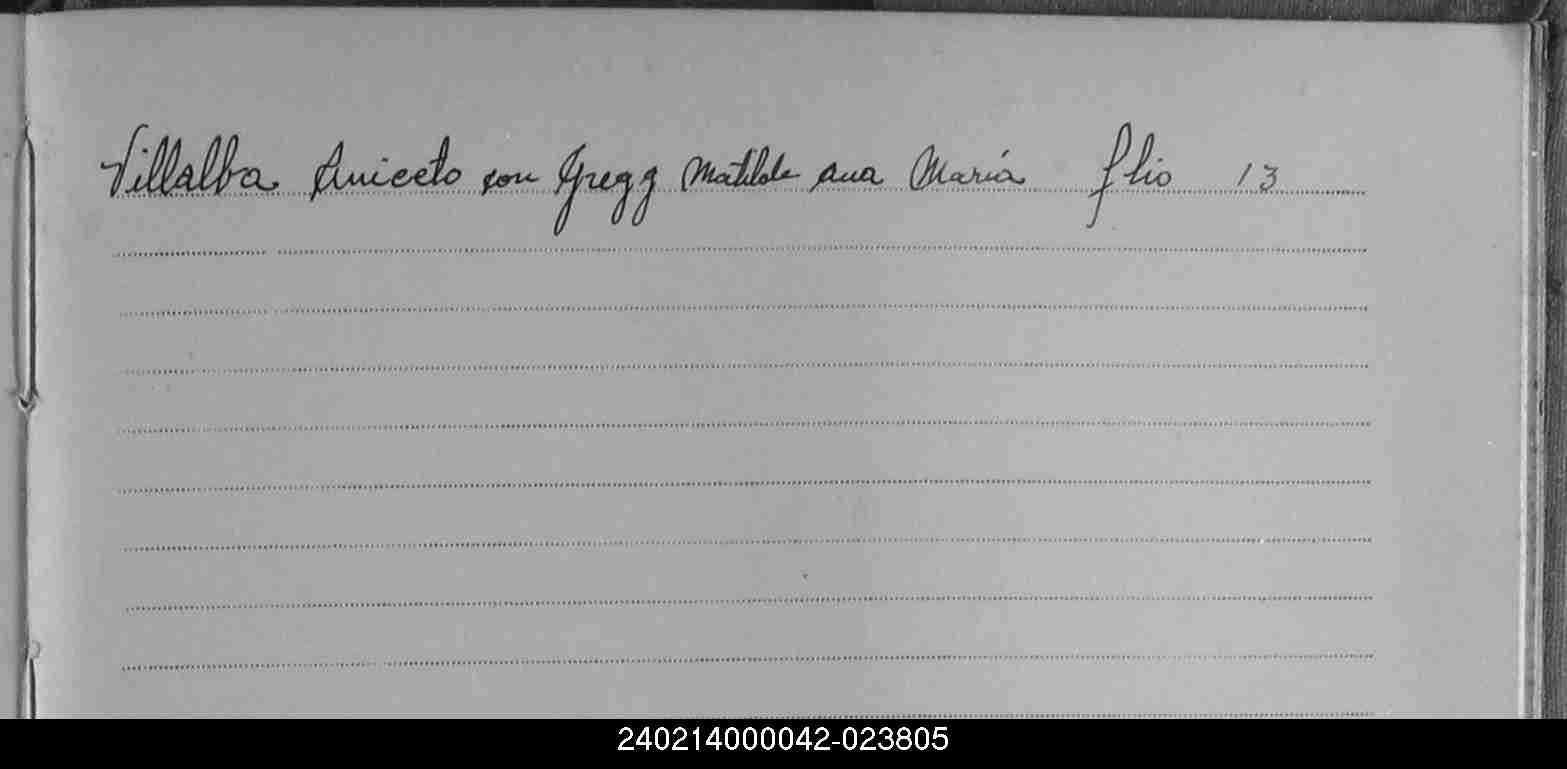 Villalba Aniceto con Gregg Matilde Ana María flio 13
240214000042-023805